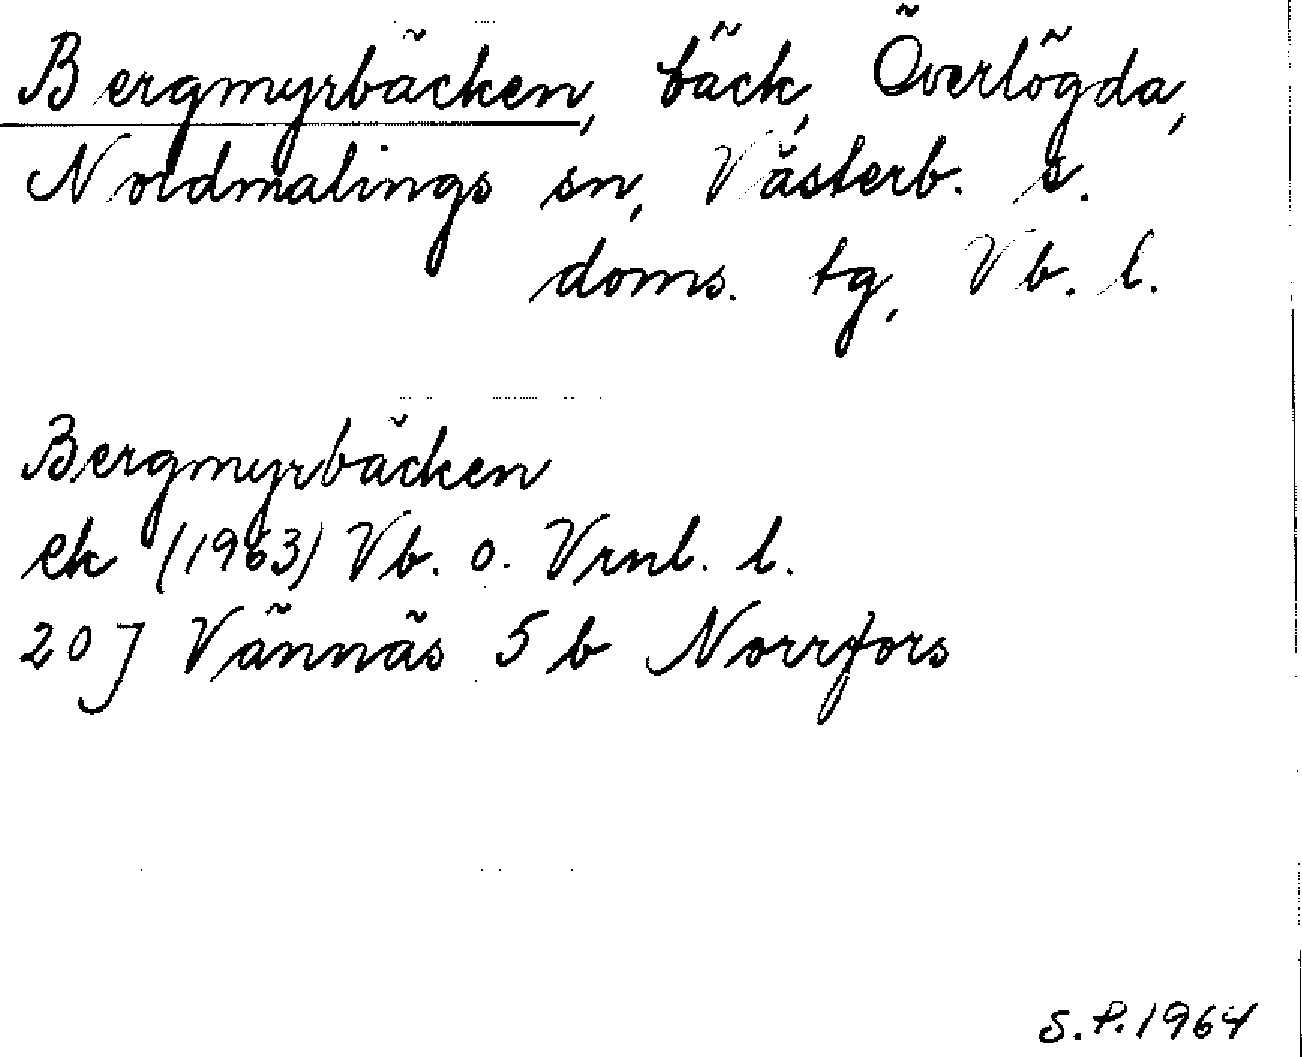 Bergmyrbäcken, bäck, Överlögda,
Nordmalings sn, Västerb. s.
doms. tg, Vb. l.
Bergmyrbäcken
ek (1963) Vb. o. Vrnl. l.
20J Vännäs 5b Norrfors
S.P. 1964